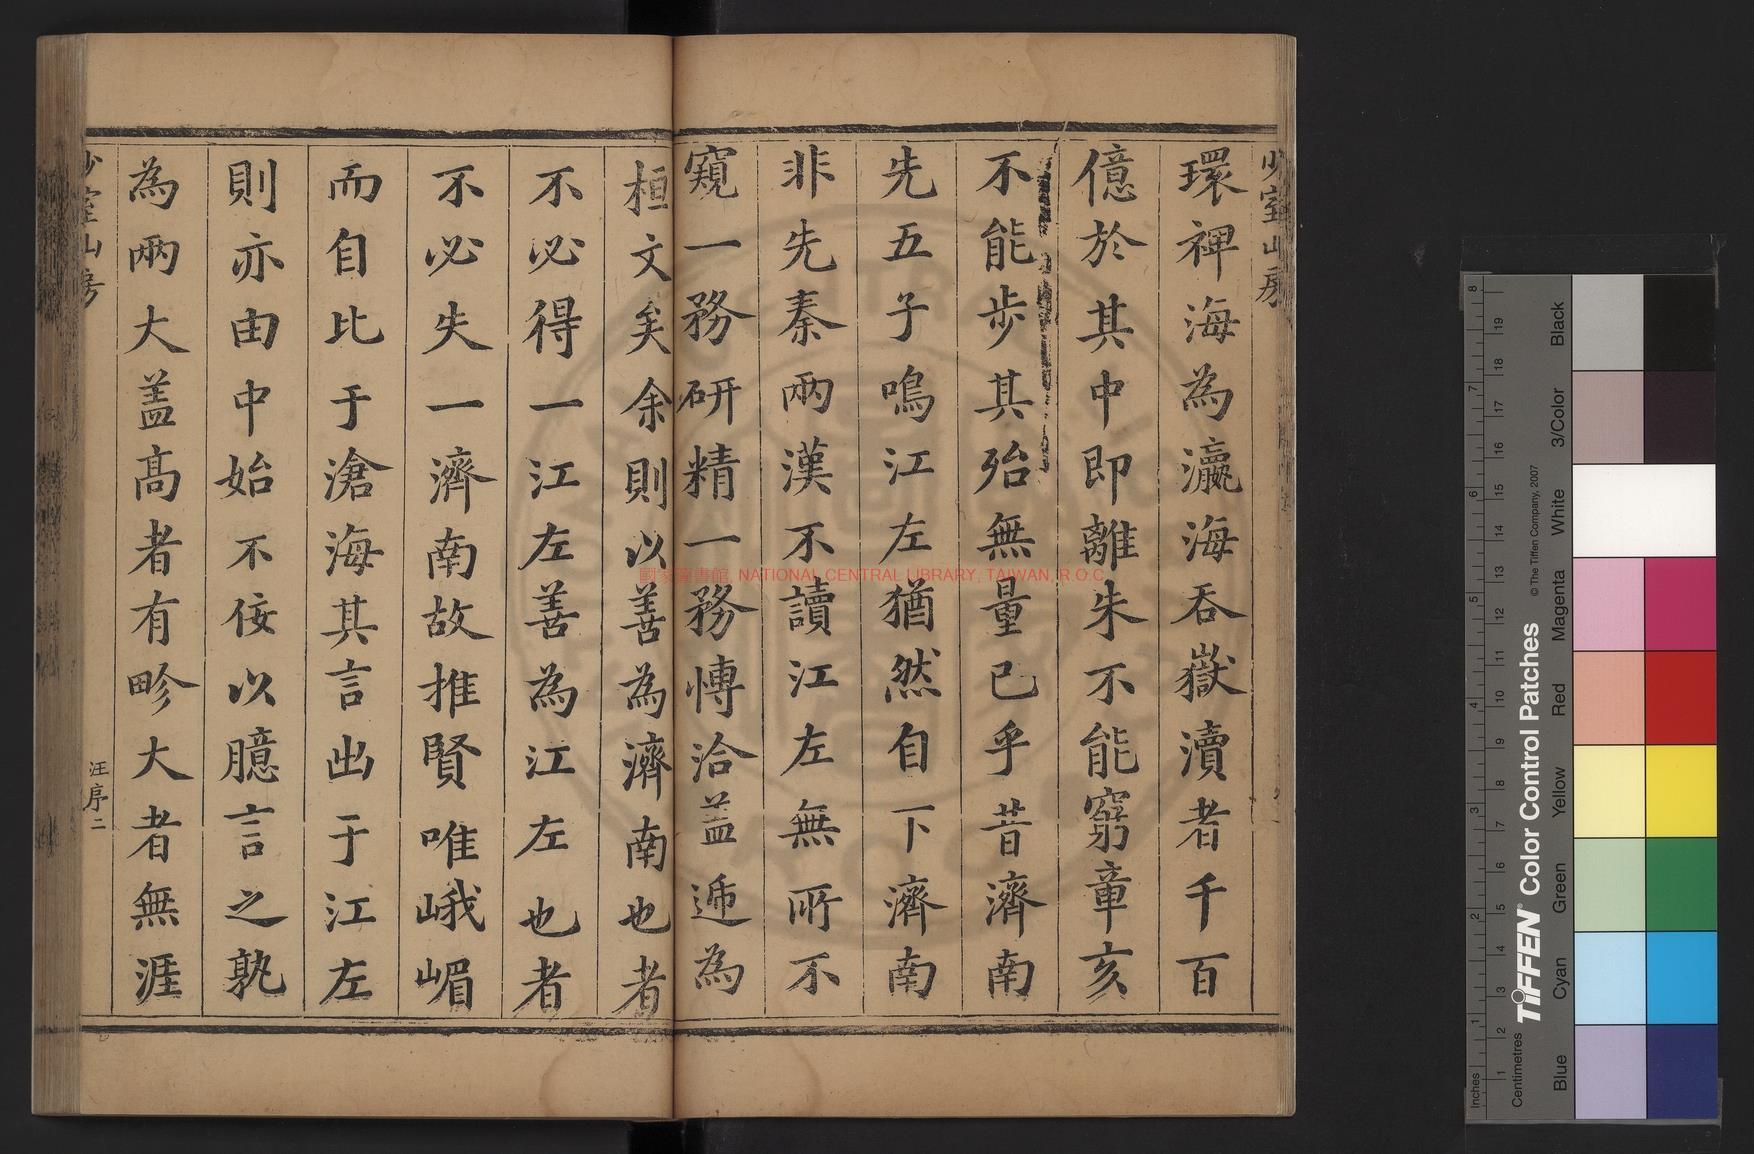 少室山房
環裨海為瀛海吞嶽瀆者千百
億於其中即離朱不能窮章亥
不能步其殆無量已乎昔濟南
先五子鳴江左猶然自下濟南
非先秦兩漢不讀江左無所不
窺一務研精一務慱洽蓋遞為
桓文矣余則以善為濟南也者
不必得一江左善為江左也者
不必失一濟南故推賢唯峨嵋
而自比于滄海其言出于江左
則亦由中始不佞以臆言之孰
為兩大盖高者有畛大者無涯
少室山房
汪序
二
國家圖書館, NATIONAL CENTRAL LIBRARY, TAIWAN, R.O.C
Inches
Centimetres
TIFFEN® Color Control Patches
© The Tiffen Company, 2007
Blue
Cyan
Green
Yellow
Red
Magenta
White
3/Color
Black